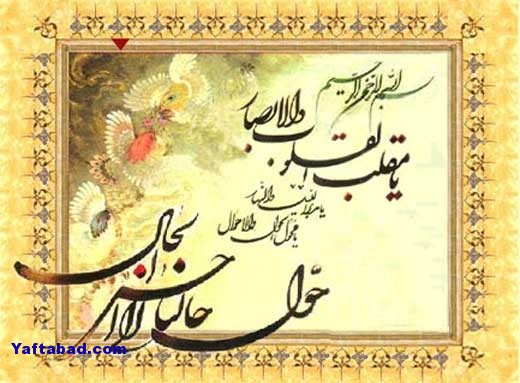 بسم الله الرحمن الرحیم
یا مقلب القلوب والابصار
یا مدبر اللیل والنهار
یا محول الحول والاحوال
حول حالنا الی احسن الحال
Yaftabad.com